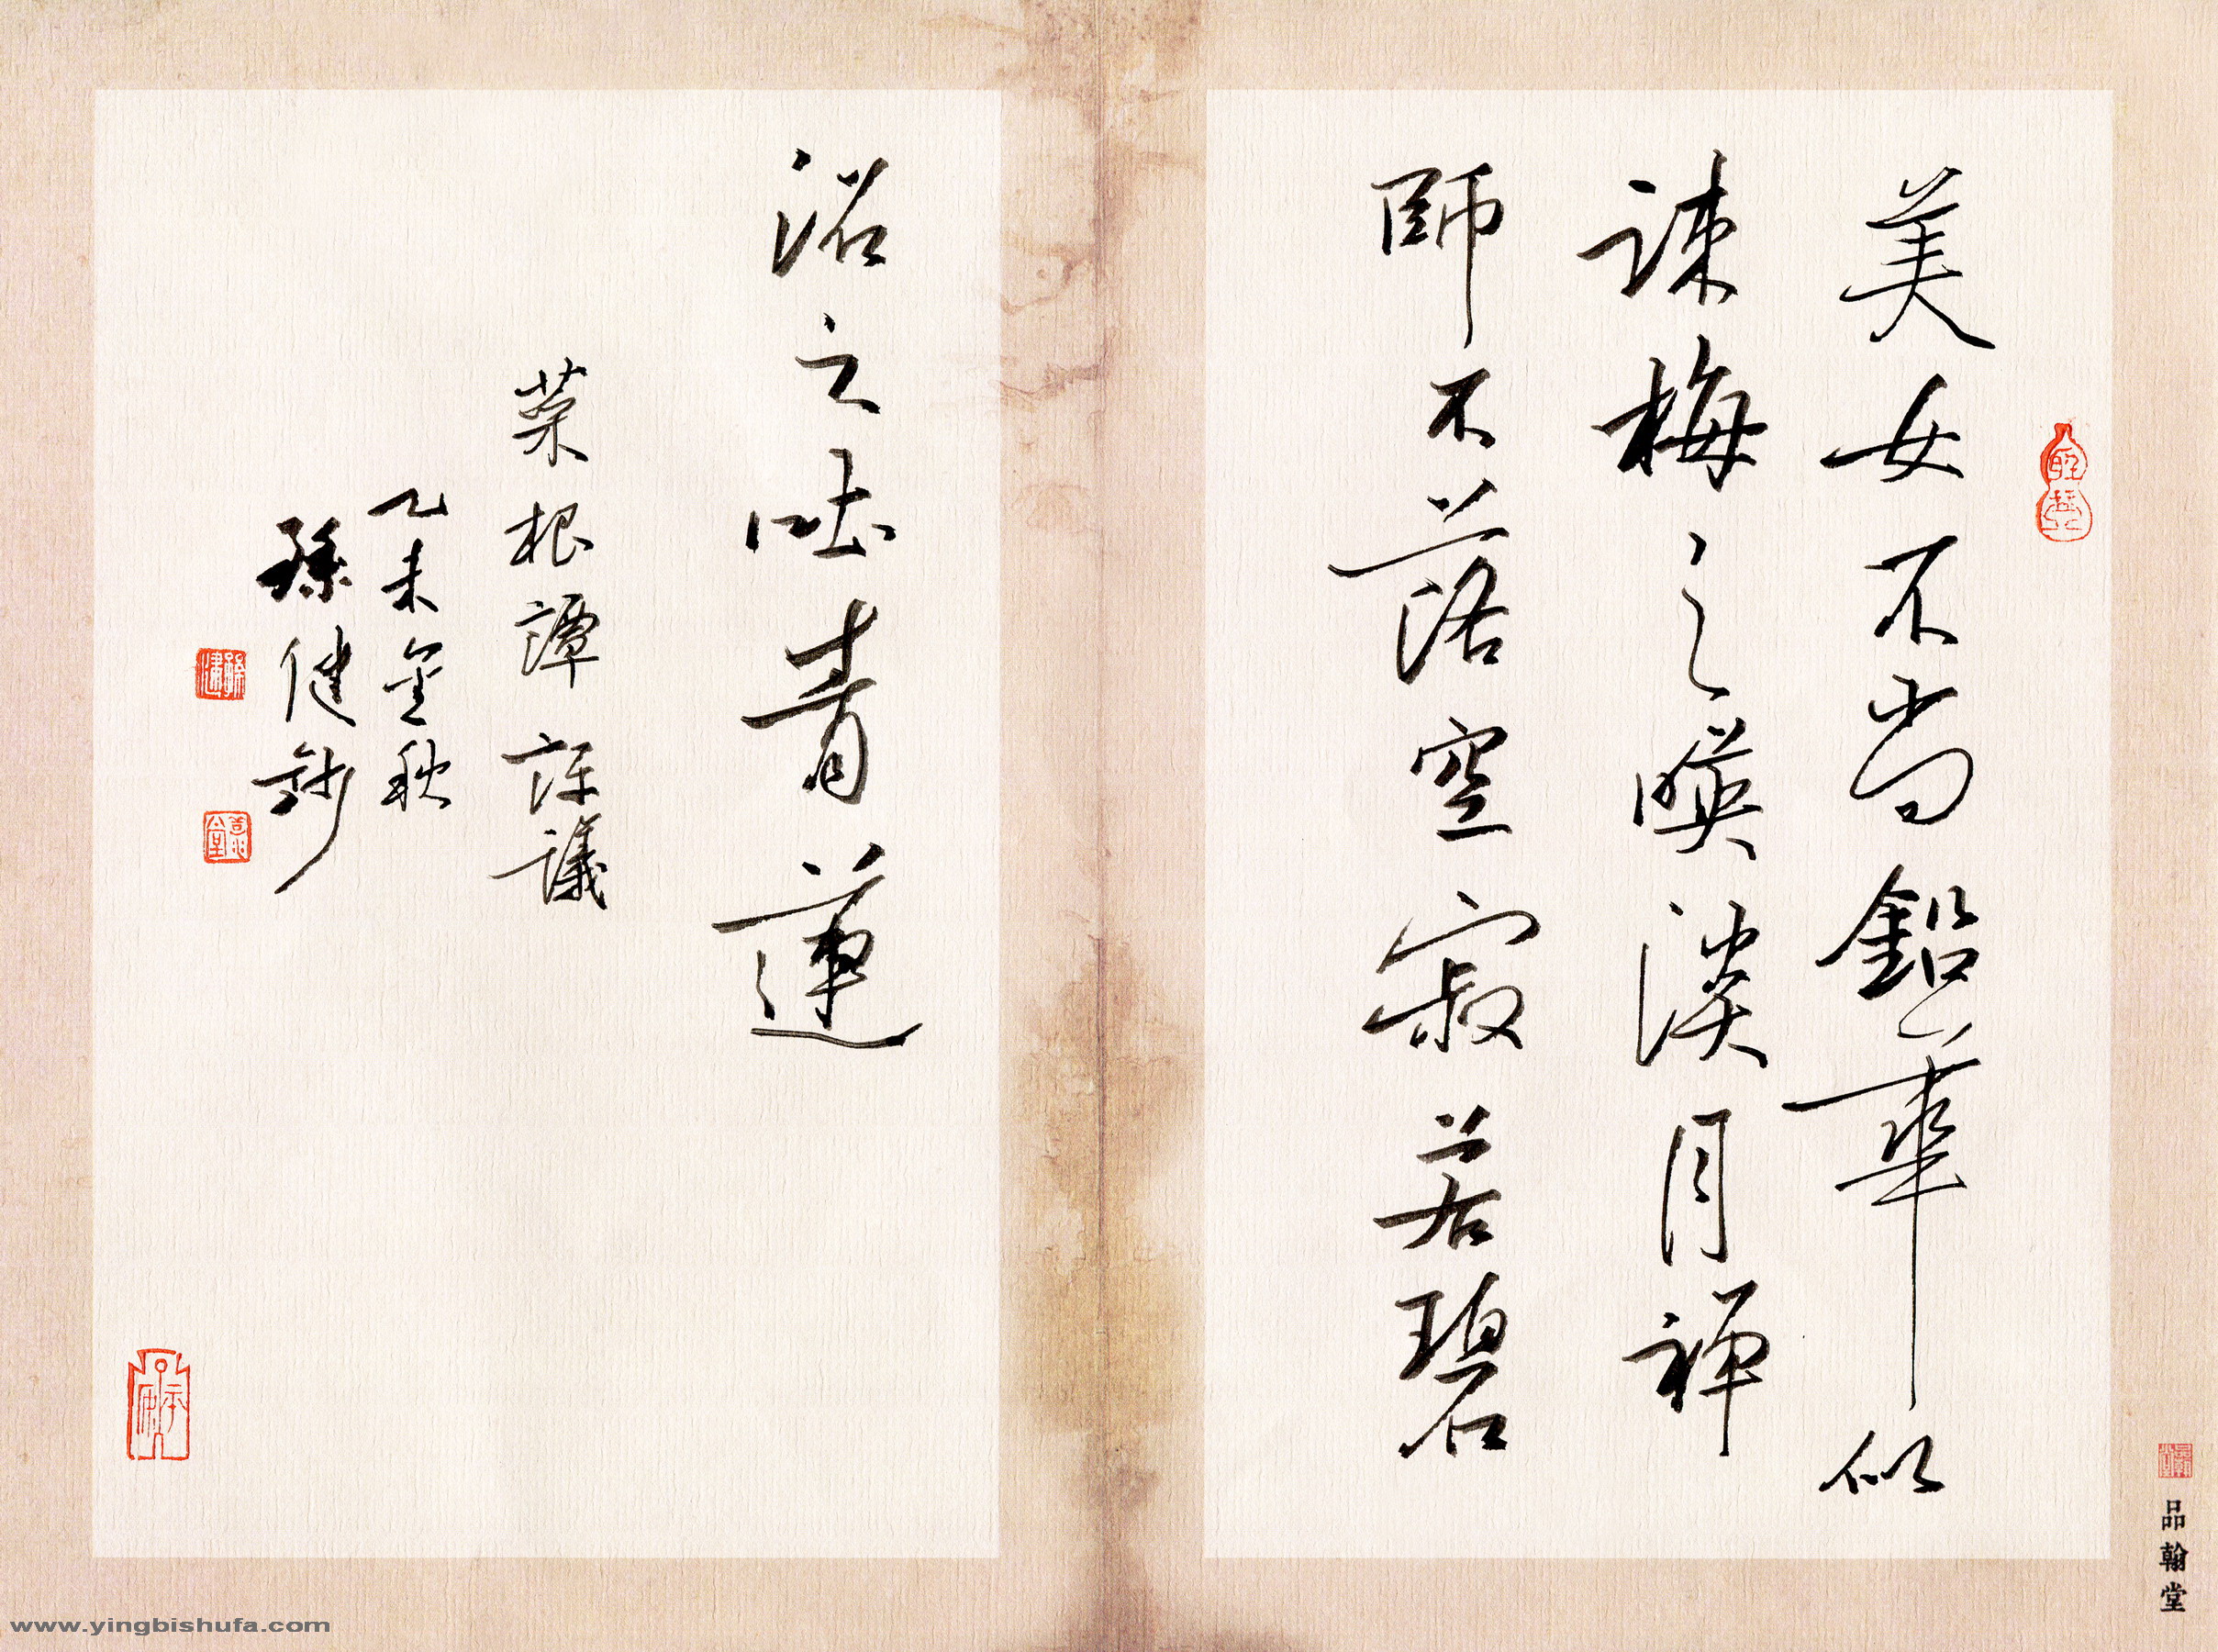 美女不尚鉛華似
踈梅之暎淡月禪
師不落空寂若碧
沼之吐青蓮
菜根譚評議
乙未金秋
孫健鈔
孫健
品翰堂
www.yingbishufa.com